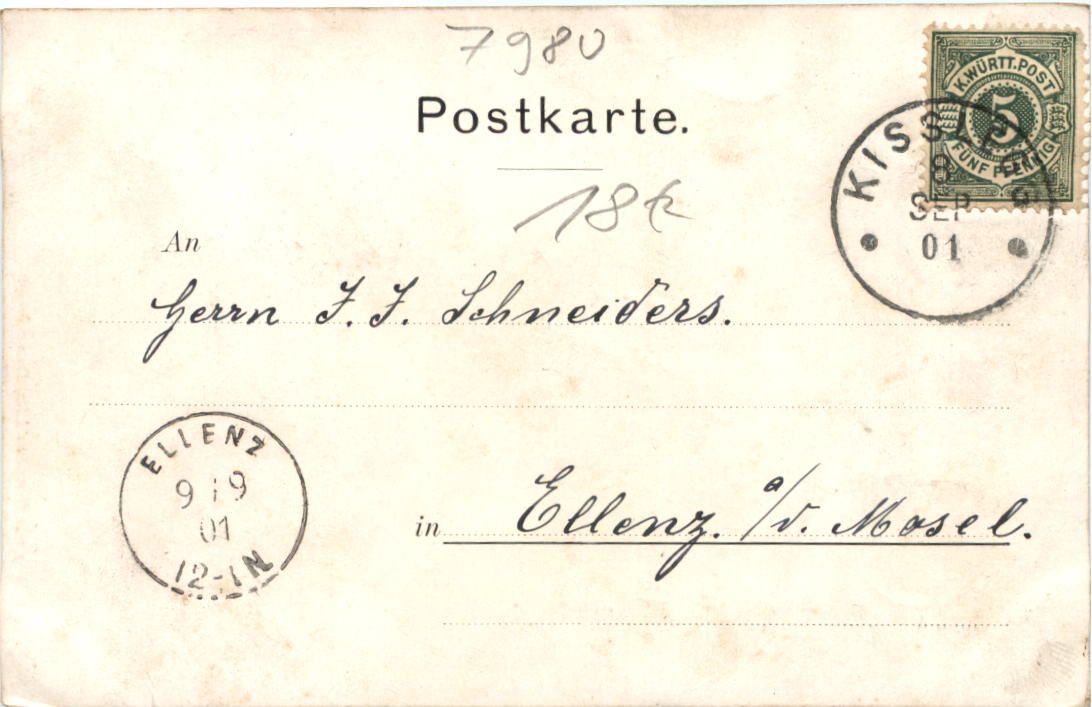 7980
Postkarte.
K. WÜRTT. POST
5
FÜNF PFENNIG
KISSLEGG
8
SEP
01
An
Herrn J. J. Schneiders.
ELLENZ
9 9
01
12-1N
in Ellenz. a/d. Mosel.